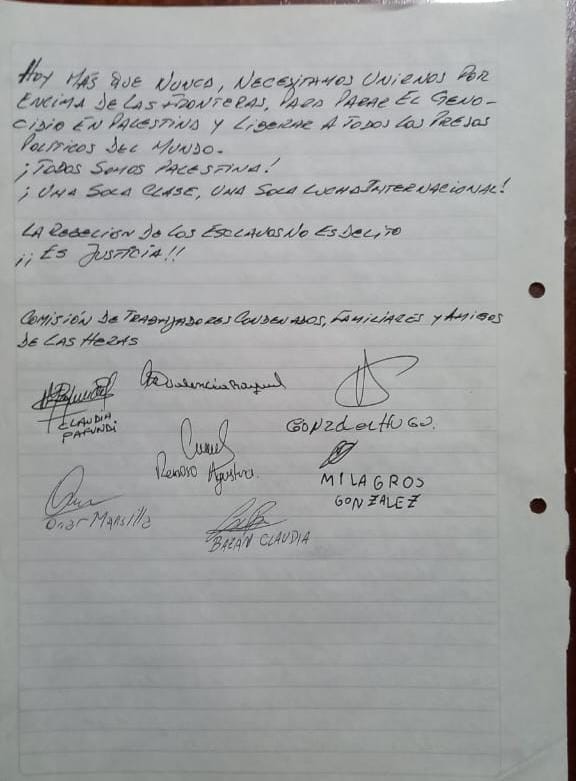 HOY MÁS QUE NUNCA, NECESITAMOS UNIRNOS POR
ENCIMA DE LAS FRONTERAS, PARA PARAR EL GENO-
CIDIO EN PALESTINA Y LIBERAR A TODOS LOS PRESOS
POLÍTICOS DEL MUNDO.
¡TODOS SOMOS PALESTINA!
¡UNA SOLA CLASE, UNA SOLA LUCHA INTERNACIONAL!
LA REBELIÓN DE LOS ESCLAVOS NO ES DELITO
¡¡ES JUSTICIA!!
COMISIÓN DE TRABAJADORES CONDENADOS, FAMILIARES Y AMIGOS
DE LAS HERAS
Valencia Raquel
CLAUDIA
PAFUNDI
GONZalez HUGO.
Reinoso Agustina.
MILAGROS
GONZALEZ
Omar Mansilla
BAZÁN CLAUDIA